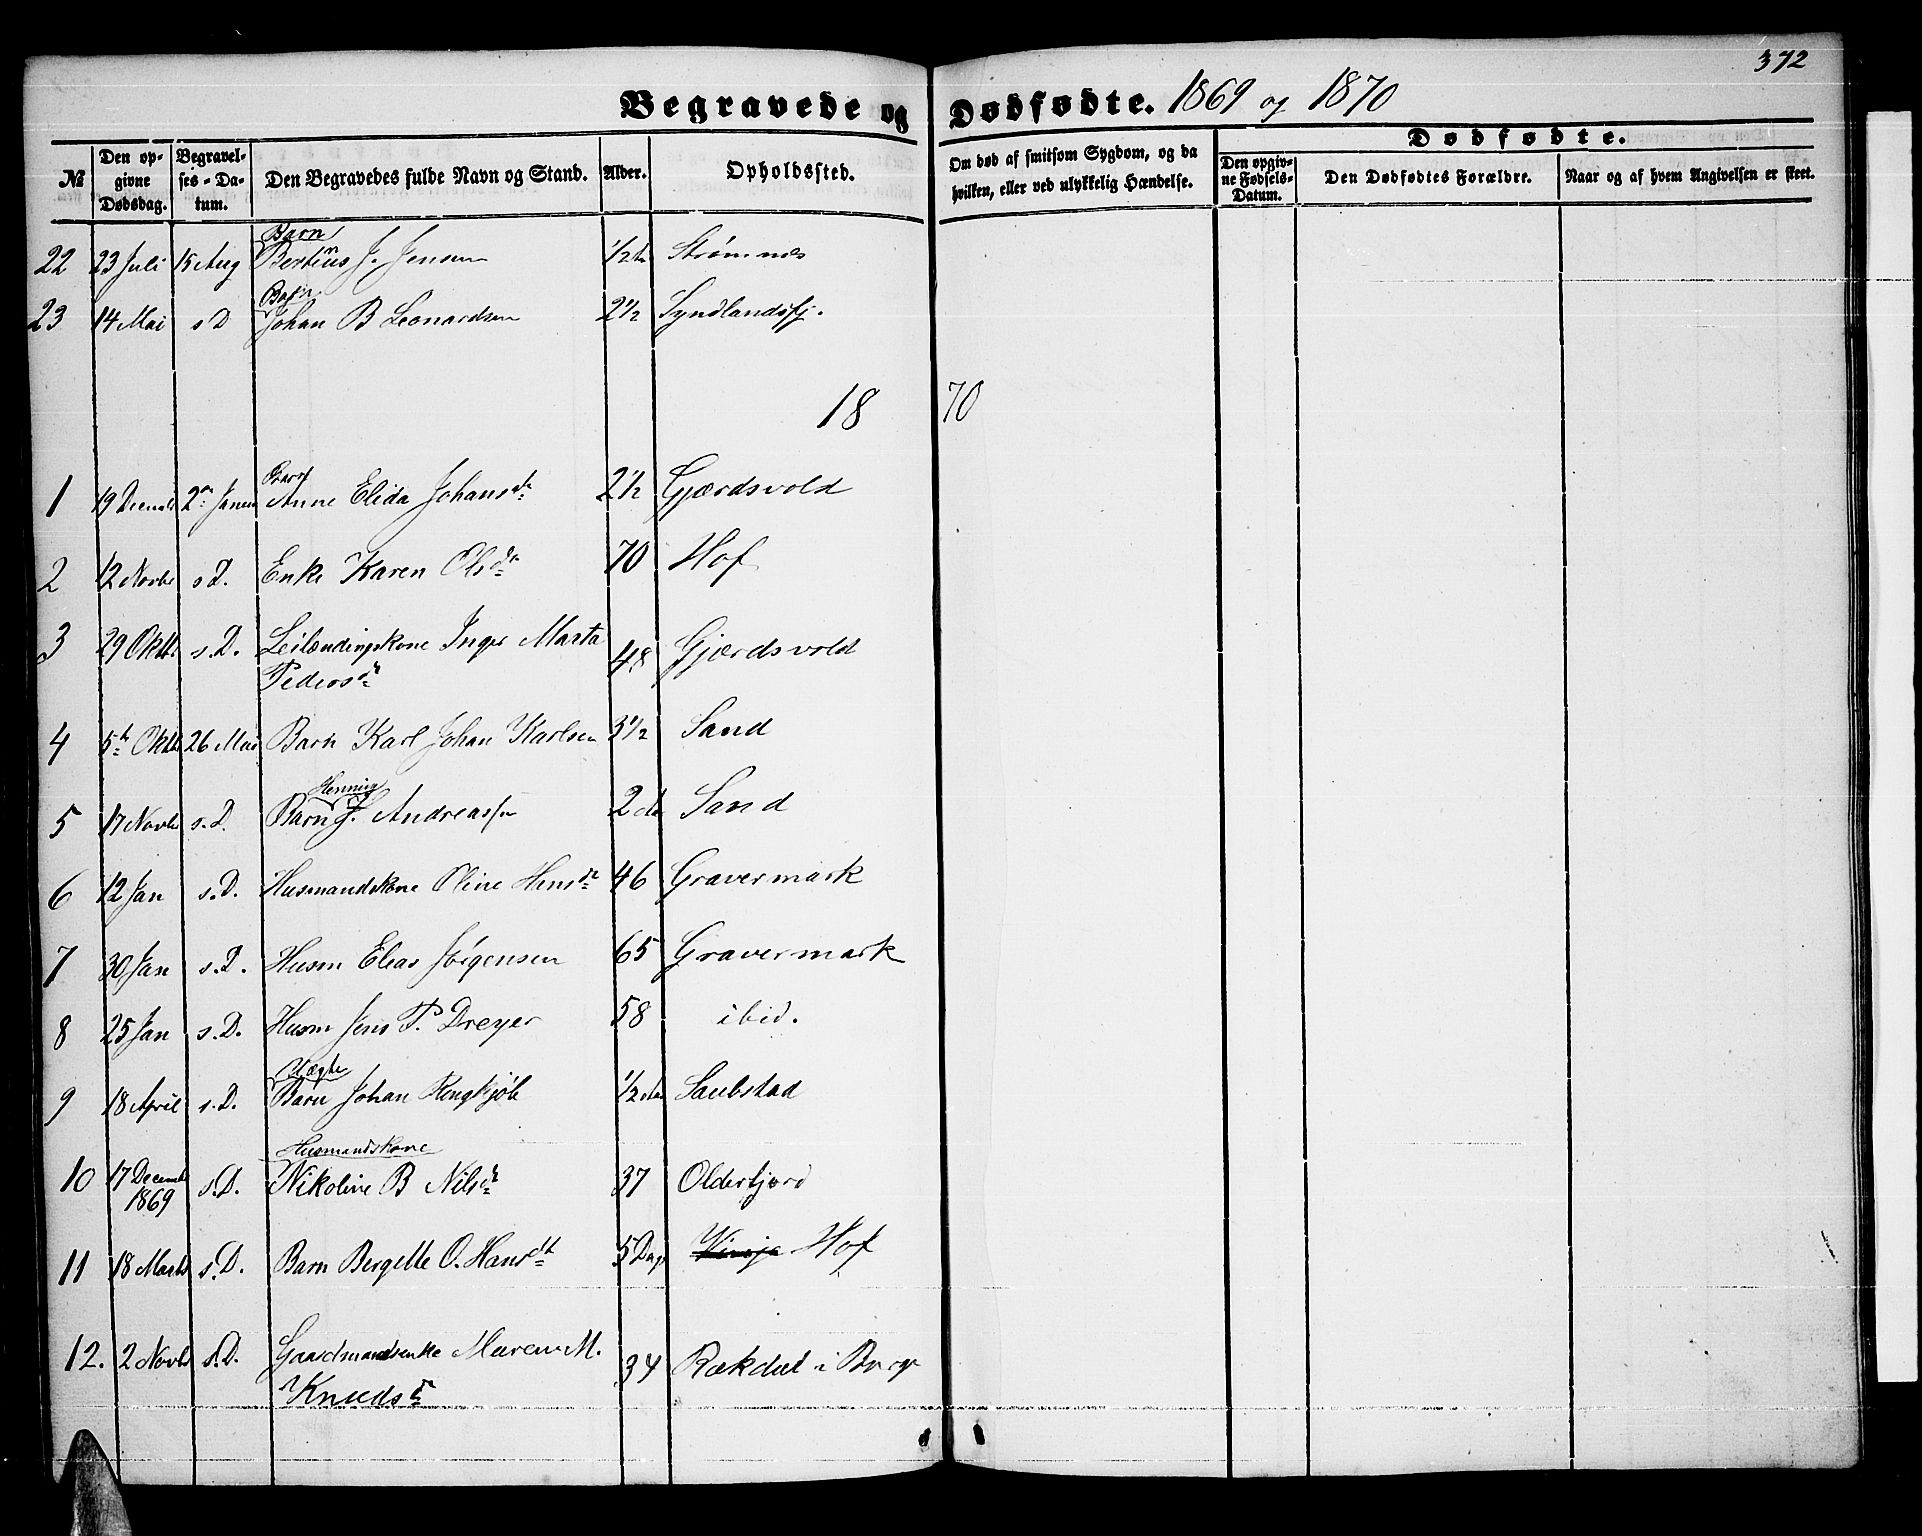 372
Begravede og Dødfødte. 1869 og 1870
№
Den opgivne Dødsdag.
Begravelses-Datum.
Den Begravedes fulde Navn og Stand.
Alder.
Opholdssted.
Om død af smitsom Sygdom, og da hvilken, eller ved ulykkelig Hændelse.
Dødfødte.
Den opgivne Fødsels-Datum.
Den Dødfødtes Forældre.
Naar og af hvem Angivelsen er skeet.
Barn
22 23 Juli 15 Aug J. Jensen 1/2 Strømnes
Barn
23 14 Mai s D Johan B Leonardsen 2 1/2 Syndlandsfj.
1870
Barn
1 19 Decemb 2 Januar Anne Elida Johansdr 2 1/2 Gjærdsvold
2 12 Novbr s D. Enke Karen Olsdr 70 Hof
3 29 Oktbr s. D. Leilændingskone Inger Marta 48 Gjærdsvold
Pedersdr
4 5te Oktb 26 Mai Barn Karl Johan Karlsen 3 1/2 Sand
Henning
5 17 Novbr s. D. Barn J. Andreassen 2 Sand
6 12 Jan s. D. Husmandskone Oline Hansdr 46 Gravermark
7 30 Jan s. D. Husm Elias Jørgensen 65 Gravermark
8 25 Jan s. D. Husm Jens P. Dreyer 58 ibid.
Uægte
9 18 April s. D. Barn Johan 1/2 Saubstad
Husmandskone
10 17 Decemb 1869 s. D. Nikoline B Nilsdr 37 Olderfjord
11 18 Marts s. D. Barn Bergette O. Hansdt 5 Dage Hof
12. 2 Novbr s. D. Gaardmandsenke Maren M. 34 Rækdal i
Knudsdr